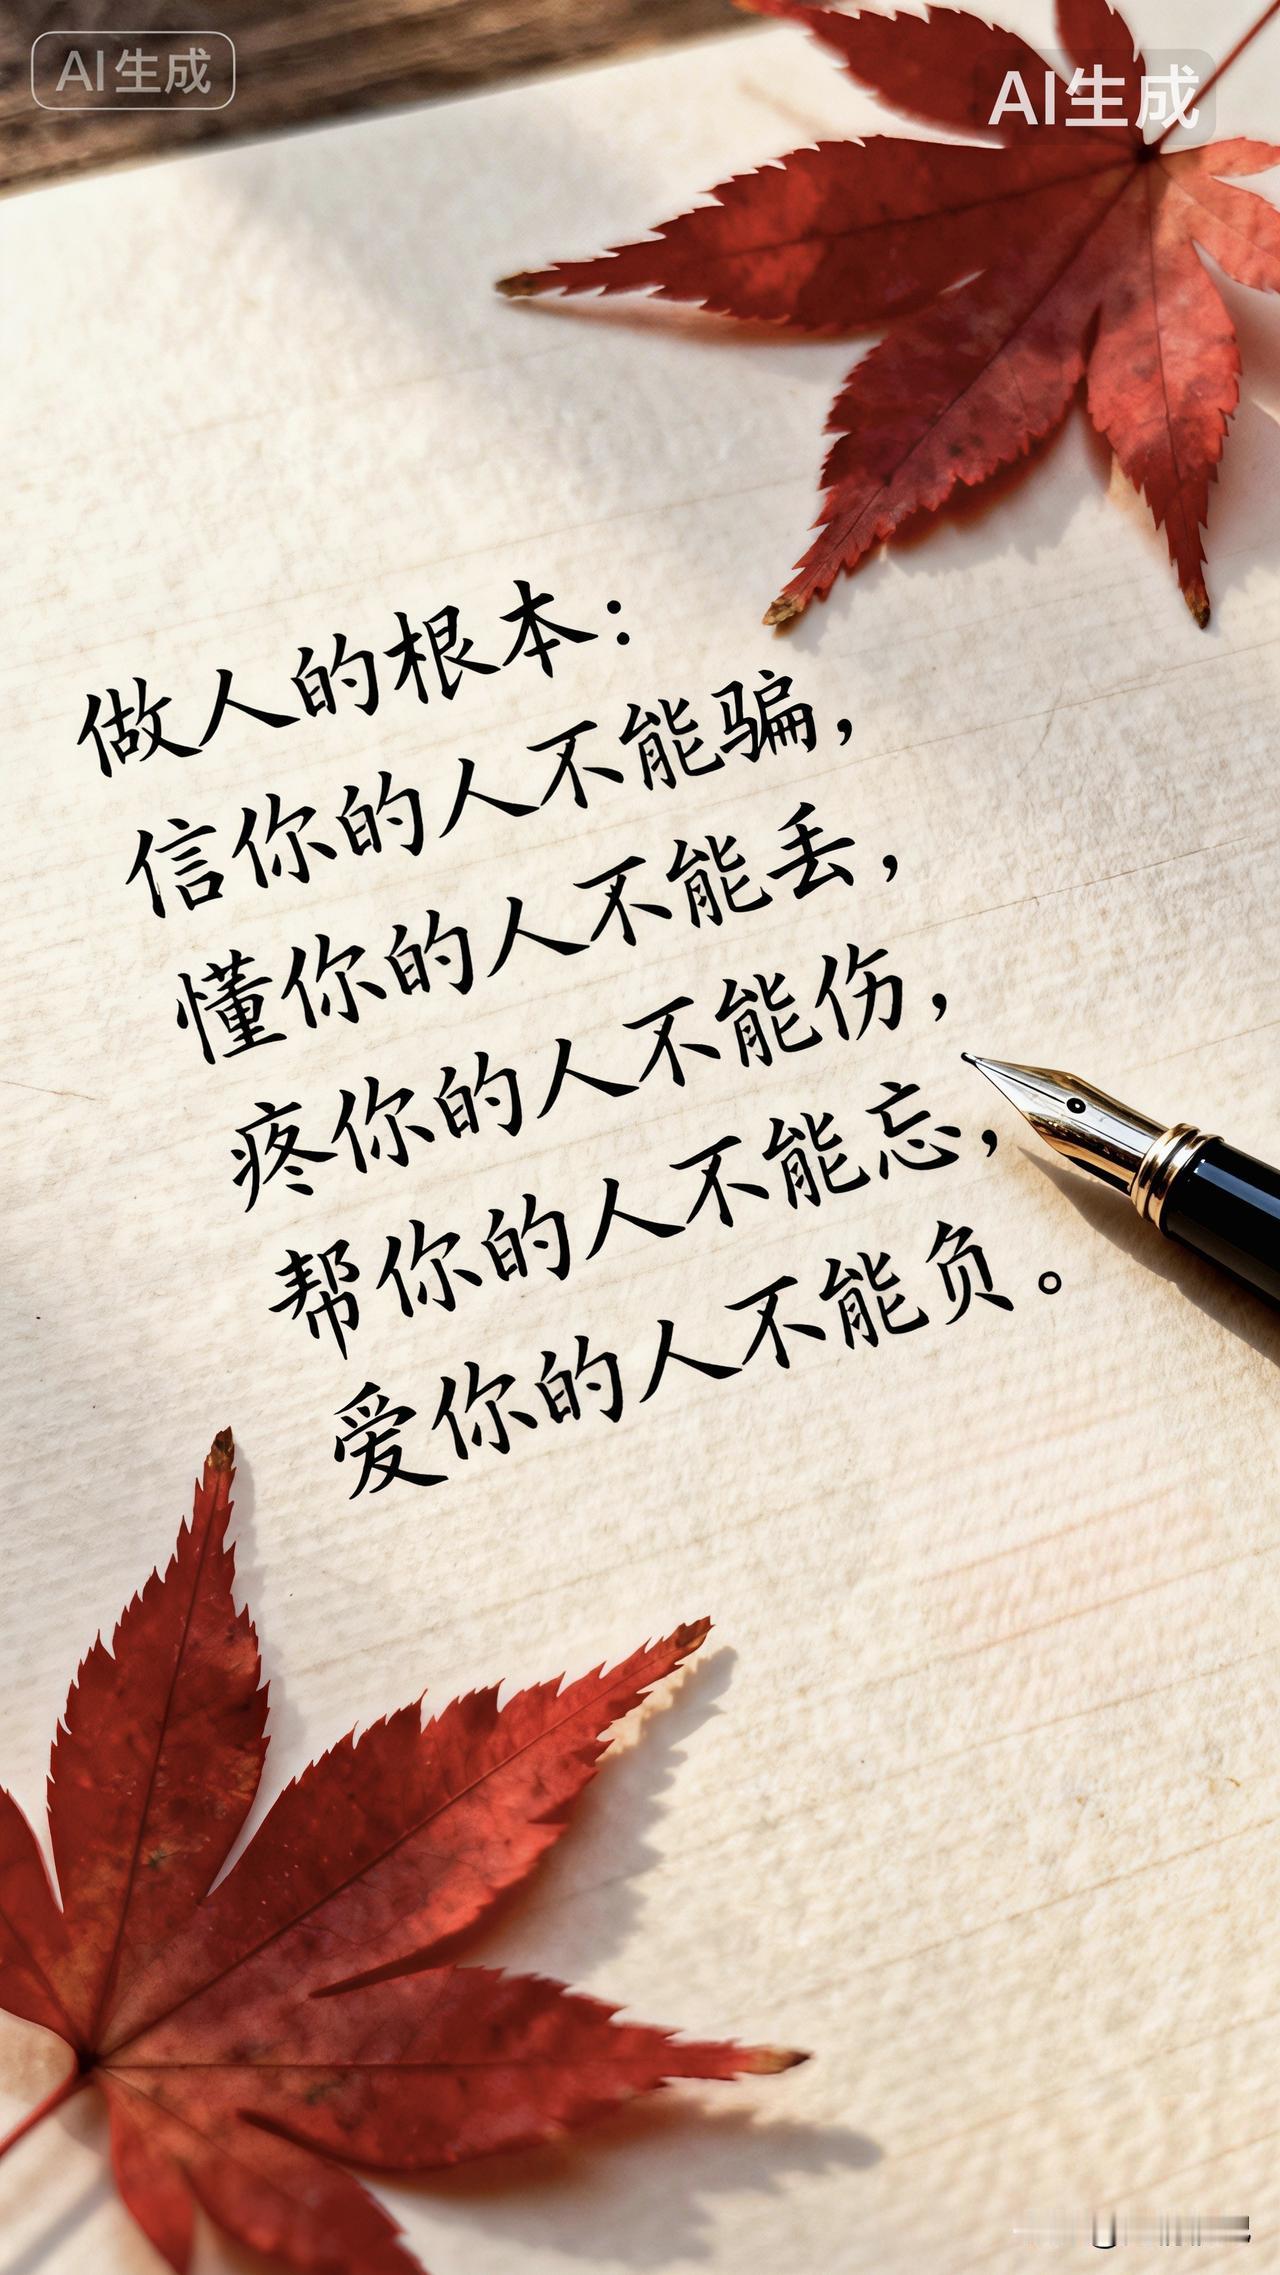 AI生成
AI生成
做人的根本：
信你的人不能骗，
懂你的人不能丢，
疼你的人不能伤，
帮你的人不能忘，
爱你的人不能负。